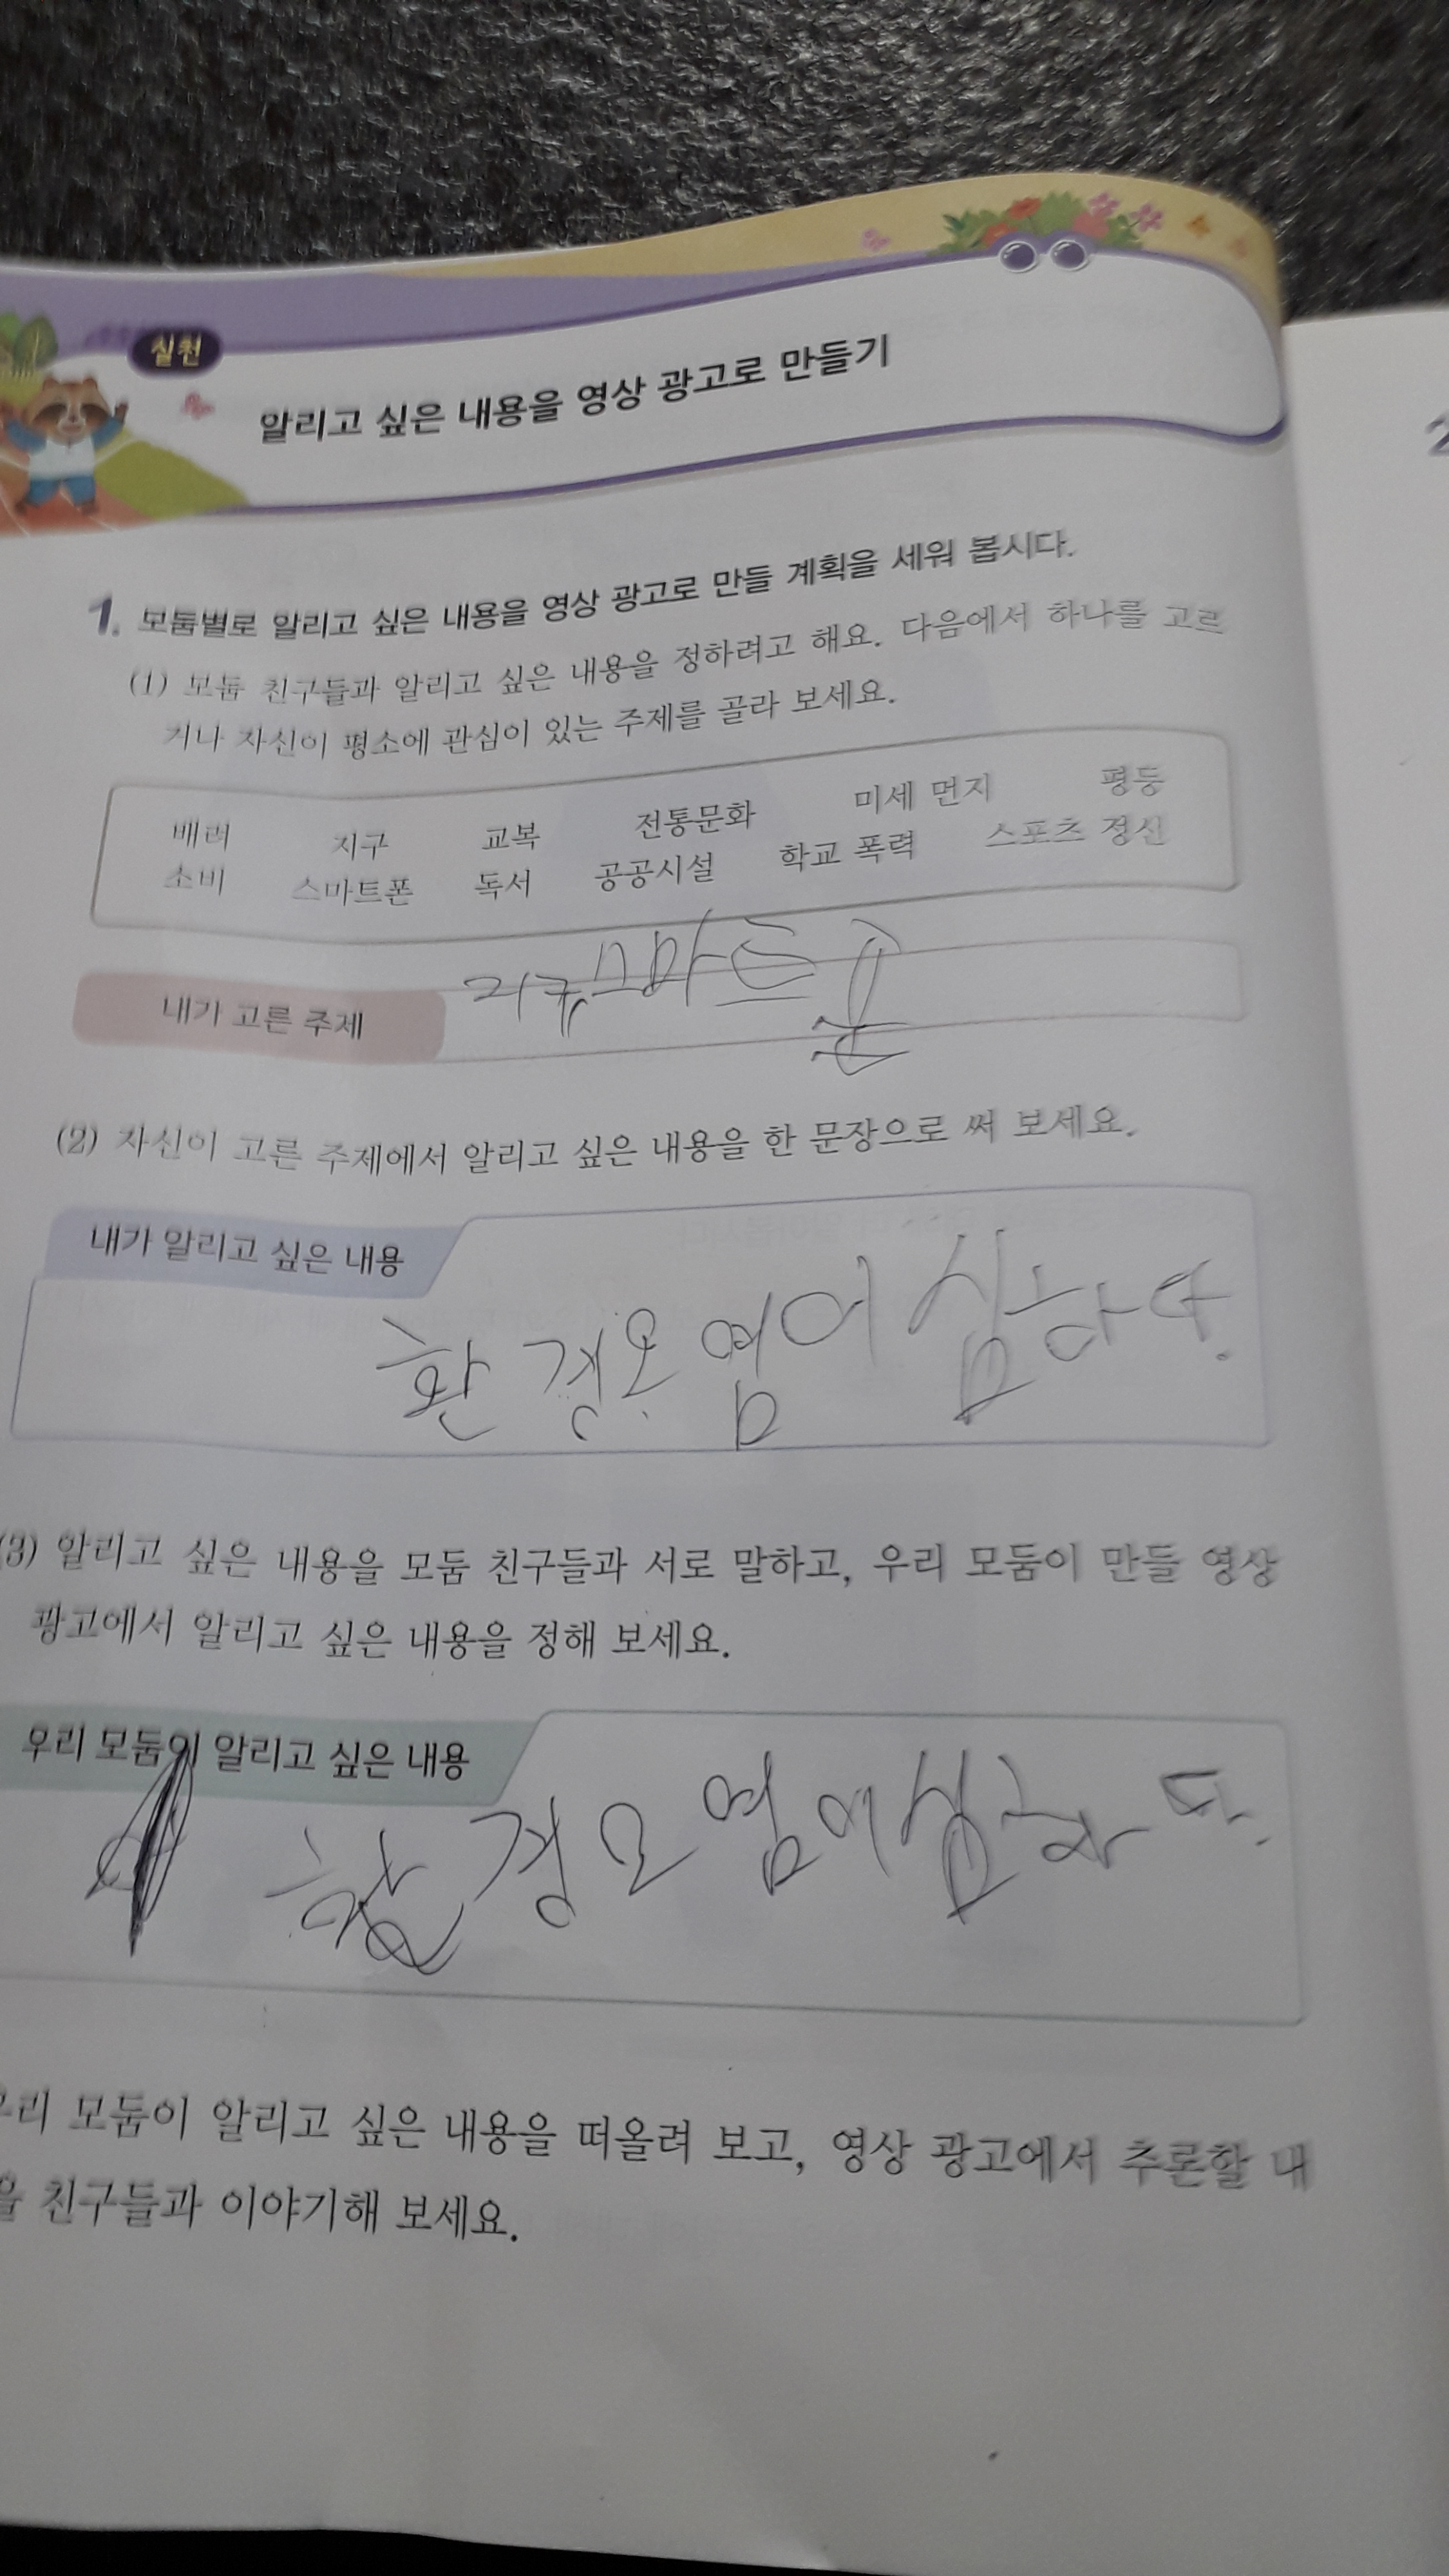 실천
알리고 싶은 내용을 영상 광고로 만들기
1. 모둠별로 알리고 싶은 내용을 영상 광고로 만들 계획을 세워 봅시다.
(1) 모둠 친구들과 알리고 싶은 내용을 정하려고 해요. 다음에서 하나를 고르
거나 자신이 평소에 관심이 있는 주제를 골라 보세요.
배려 지구 교복 전통문화 미세 먼지 평등
소비 스마트폰 독서 공공시설 학교 폭력 스포츠 정신
내가 고른 주제 지구, 스마트폰
(2) 자신이 고른 주제에서 알리고 싶은 내용을 한 문장으로 써 보세요.
내가 알리고 싶은 내용
환경오염이 심하다.
(3) 알리고 싶은 내용을 모둠 친구들과 서로 말하고, 우리 모둠이 만들 영상
광고에서 알리고 싶은 내용을 정해 보세요.
우리 모둠이 알리고 싶은 내용
환경오염이 심하다.
우리 모둠이 알리고 싶은 내용을 떠올려 보고, 영상 광고에서 추론할 내
을 친구들과 이야기해 보세요.
2